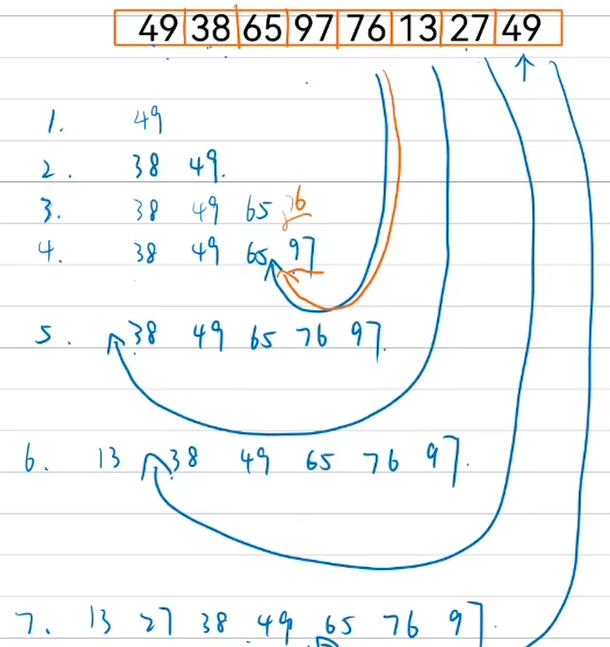 49 38 65 97 76 13 27 49
1. 49
2. 38 49.
3. 38 49 65 76
4. 38 49 65 97
5. 38 49 65 76 97
6. 13 38 49 65 76 97.
7. 13 27 38 49 65 76 97